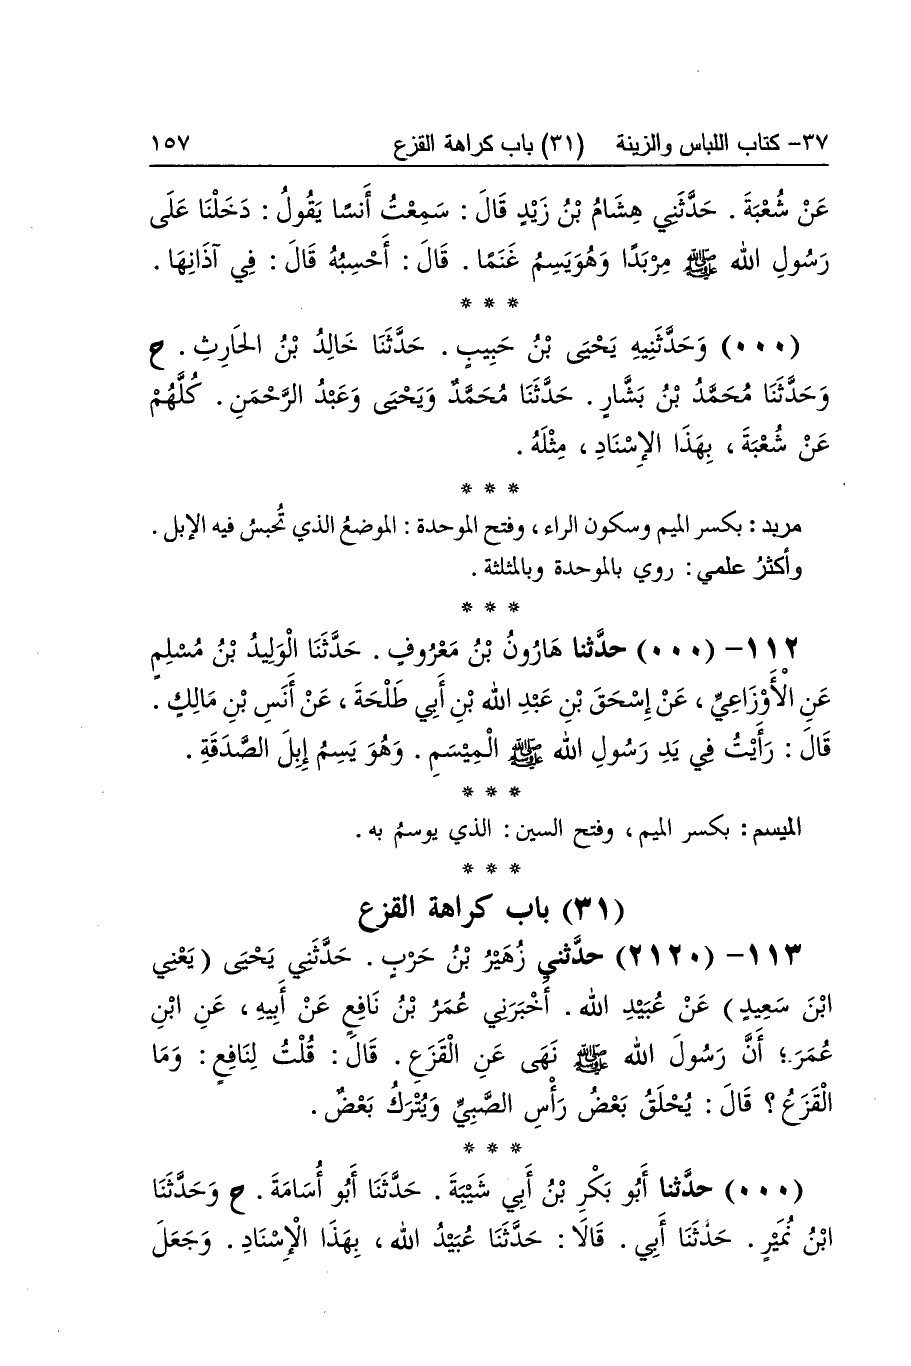 ٣٧- كتاب اللباس والزينة (٣١) باب كراهة القزع ١٥٧
عَنْ شُعْبَةَ . حَدَّثَنِي هِشَامُ بْنُ زَيْدٍ قَالَ : سَمِعْتُ أَنَسًا يَقُولُ : دَخَلْنَا عَلَى
رَسُولِ الله ﷺ مِرْبَدًا وَهُوَيَسِمُ غَنَمًا . قَالَ : أَحْسِبُهُ قَالَ : فِي آذَانِهَا .
* * *
(٠٠٠) وَحَدَّثَنِيهِ يَحْيَى بْنُ حَبِيبٍ . حَدَّثَنَا خَالِدُ بْنُ الحَارِثِ . ح
وَحَدَّثَنَا مُحَمَّدُ بْنُ بَشَّارٍ . حَدَّثَنَا مُحَمَّدٌ وَيَحْيَى وَعَبْدُ الرَّحْمَنِ . كُلُّهُمْ
عَنْ شُعْبَةَ ، بِهَذَا الإِسْنَادِ ، مِثْلَهُ .
* * *
مربد : بكسر الميم وسكون الراء ، وفتح الموحدة : الموضعُ الذي تُحبسُ فيه الإبل .
وأكثرُ علمي : روي بالموحدة وبالمثلثة .
* * *
١١٢- (٠٠٠) حدَّثنا هَارُونُ بْنُ مَعْرُوفٍ . حَدَّثَنَا الْوَلِيدُ بْنُ مُسْلِمٍ
عَنِ الْأَوْزَاعِيِّ ، عَنْ إِسْحَقَ بْنِ عَبْدِ الله بْنِ أَبِي طَلْحَةَ ، عَنْ أَنَسِ بْنِ مَالِكٍ .
قَالَ : رَأَيْتُ فِي يَدِ رَسُولِ الله ﷺ الْمِيْسَمِ . وَهُوَ يَسِمُ إِبِلَ الصَّدَقَةِ .
* * *
الميسم : بكسر الميم ، وفتح السين : الذي يوسمُ به .
* * *
(٣١) باب كراهة القزع
١١٣- (٢١٢٠) حدَّثني زُهَيْرُ بْنُ حَرْبٍ . حَدَّثَنِي يَحْيَى (يَعْنِي
ابْنَ سَعِيدٍ) عَنْ عُبَيْدِ الله . أَخْبَرَنِي عُمَرُ بْنُ نَافِعٍ عَنْ أَبِيهِ ، عَنِ ابْنِ
عُمَرَ ؛ أَنَّ رَسُولَ الله ﷺ نَهَى عَنِ الْقَزَعِ . قَالَ : قُلْتُ لِنَافِعٍ : وَمَا
الْقَزَعُ ؟ قَالَ : يُحْلَقُ بَعْضُ رَأْسِ الصَّبِيِّ وَيُتْرَكُ بَعْضٌ .
* * *
(٠٠٠) حدَّثنا أَبُو بَكْرِ بْنُ أَبِي شَيْبَةَ . حَدَّثَنَا أَبُو أُسَامَةَ . ح وَحَدَّثَنَا
ابْنُ نُمَيْرٍ . حَدَّثَنَا أَبِي . قَالَا : حَدَّثَنَا عُبَيْدُ الله ، بِهَذَا الْإِسْنَادِ . وَجَعَلَ